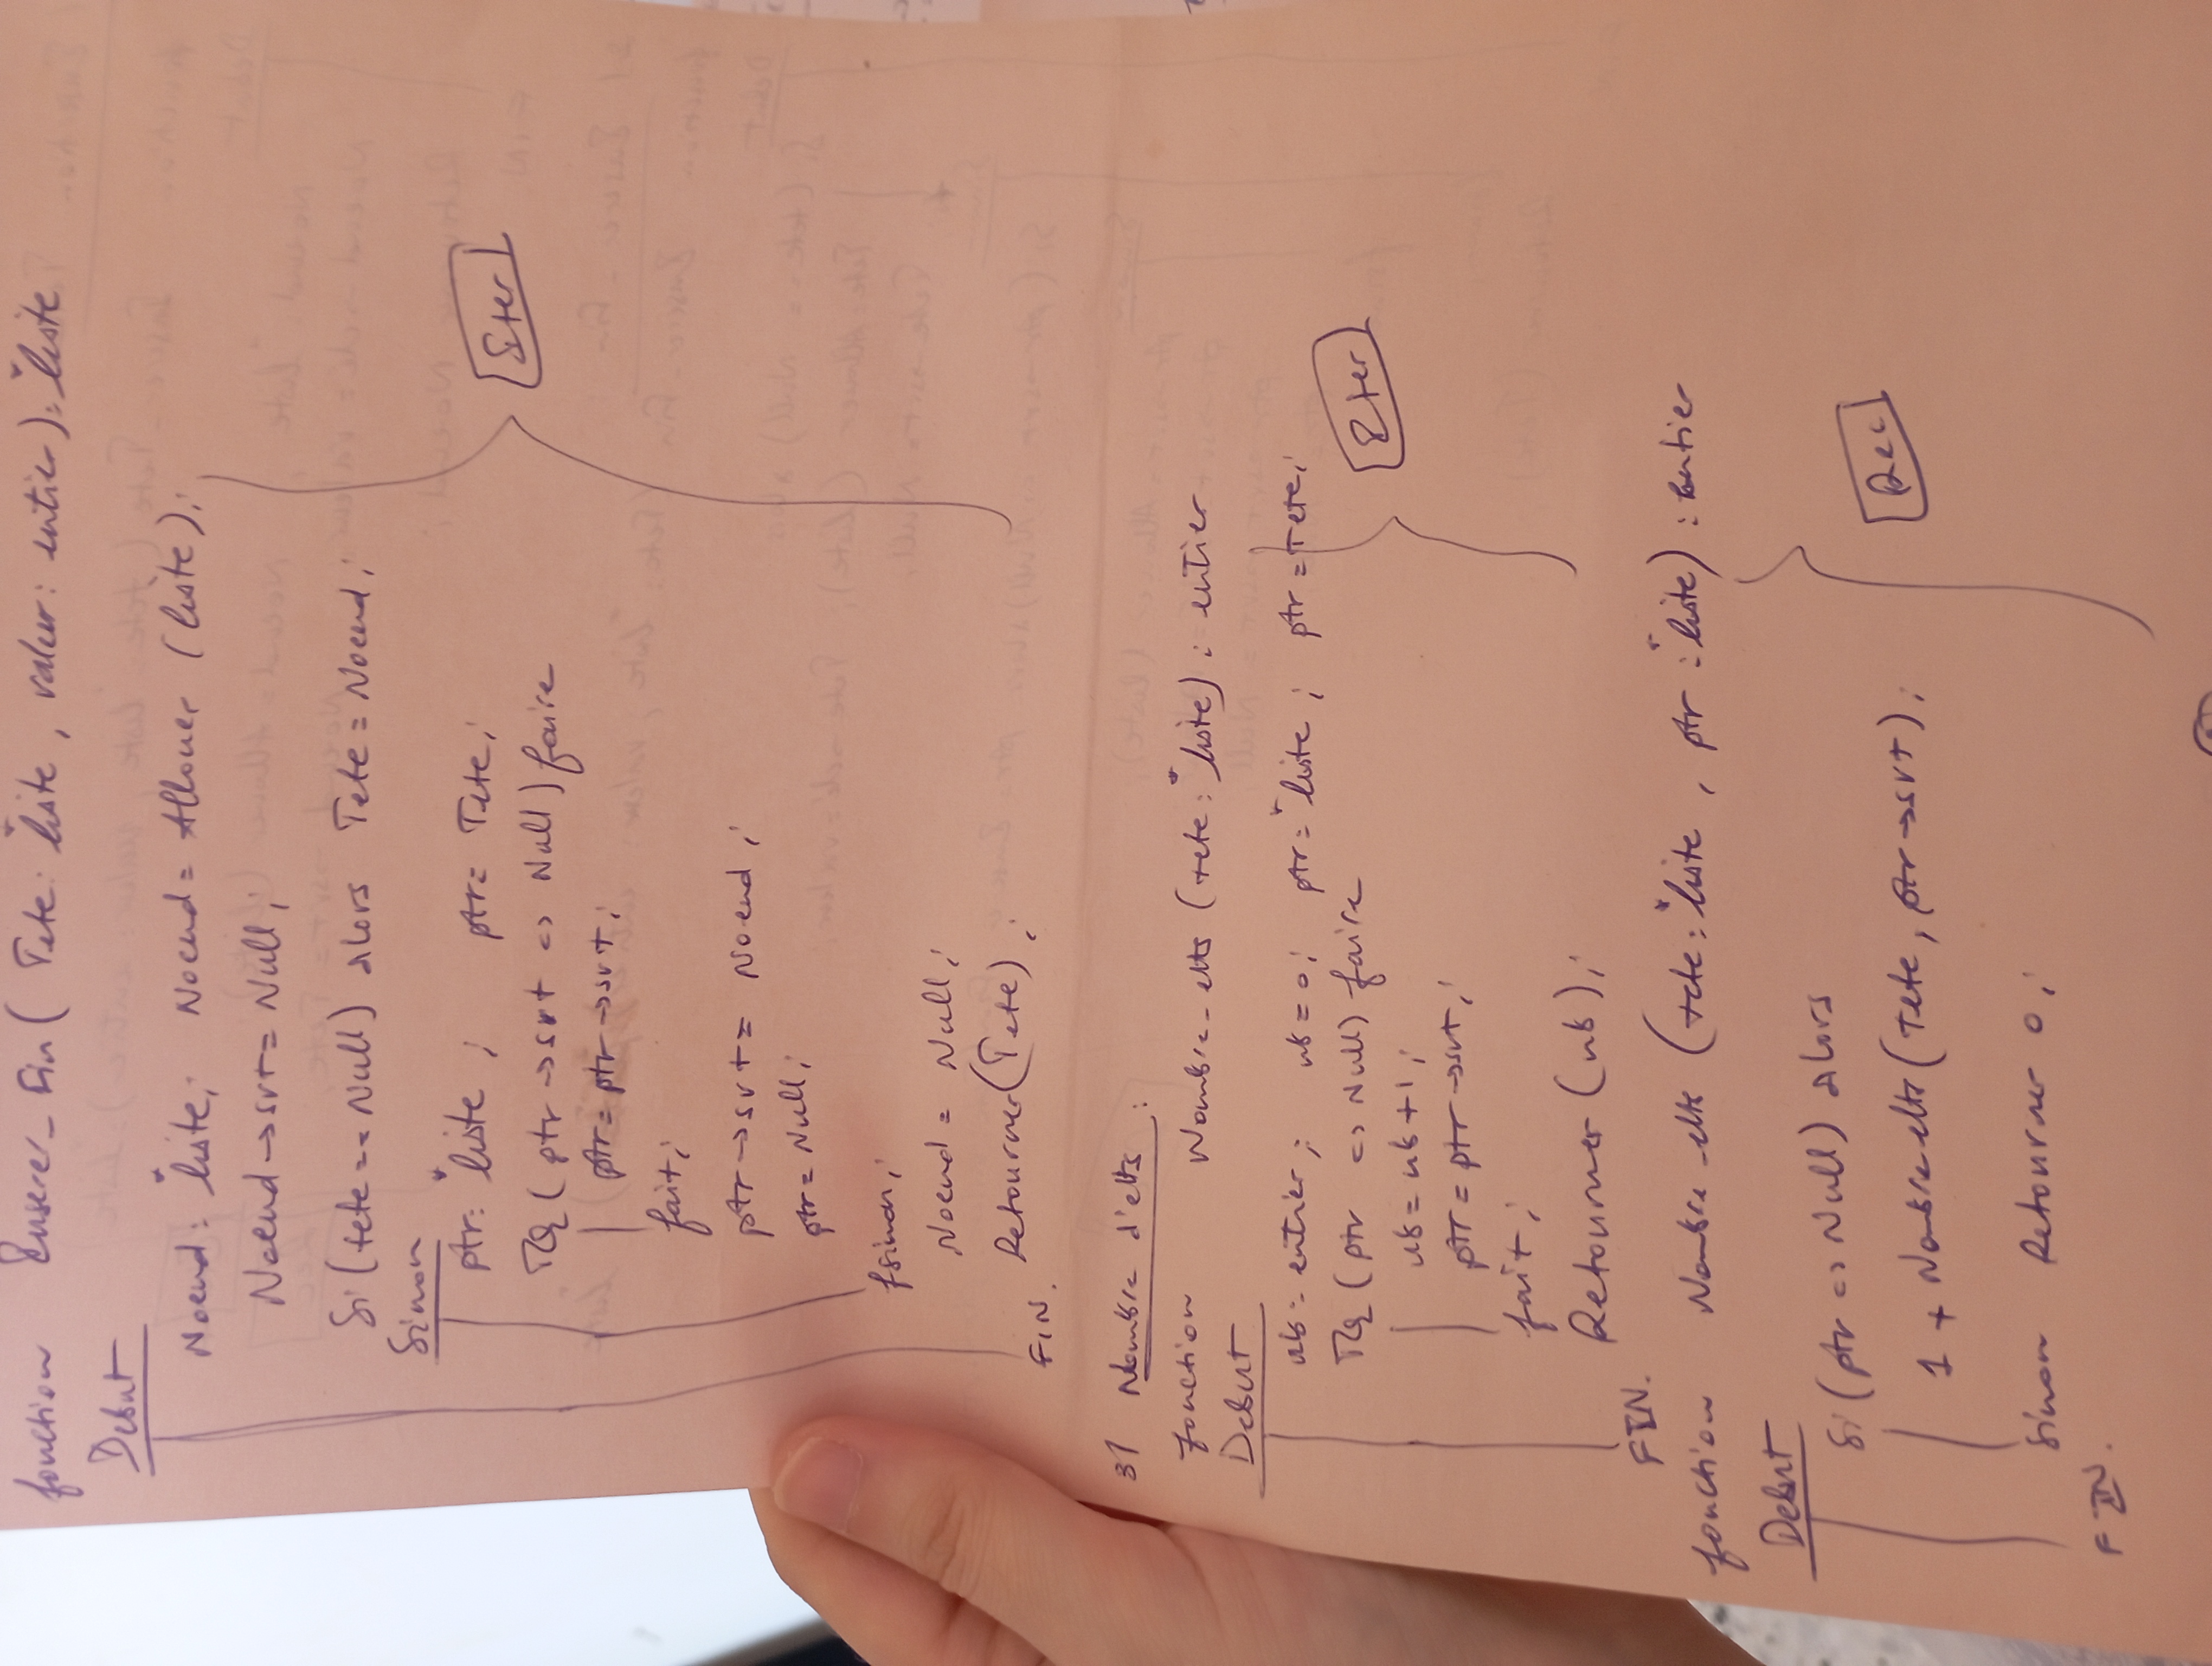 fonction Inserer_Fin ( Tete: *liste , valeur: entier ): *liste
Debut
Noeud: *liste; Noeud = Allouer (liste);
Noeud → svt = Null ;
Si (tete == Null) alors Tete = Noeud ;
Sinon
ptr: *liste ; ptr = Tete ;
TQ ( ptr → svt <> Null ) faire
ptr = ptr → svt ;
fait ;
ptr → svt = Noeud ;
ptr = Null ;
fsinon ;
Noeud = Null ;
Retourner (Tete) ;
FIN.
Iter
3/ Nombre d'elts :
fonction Nombre_elts (tete : *liste) : entier
Debut
nb : entier ; nb = 0 ; ptr = *liste ; ptr = Tete ;
TQ ( ptr <> Null) faire
nb = nb + 1 ;
ptr = ptr → svt ;
fait ;
Retourner (nb) ;
FIN.
Iter
fonction Nombre_elts (tete : *liste , ptr : *liste) : entier
Debut
Si (ptr <> Null) alors
1 + Nombre elts (Tete , ptr → svt) ;
Sinon Retourner 0 ;
FIN.
Rec